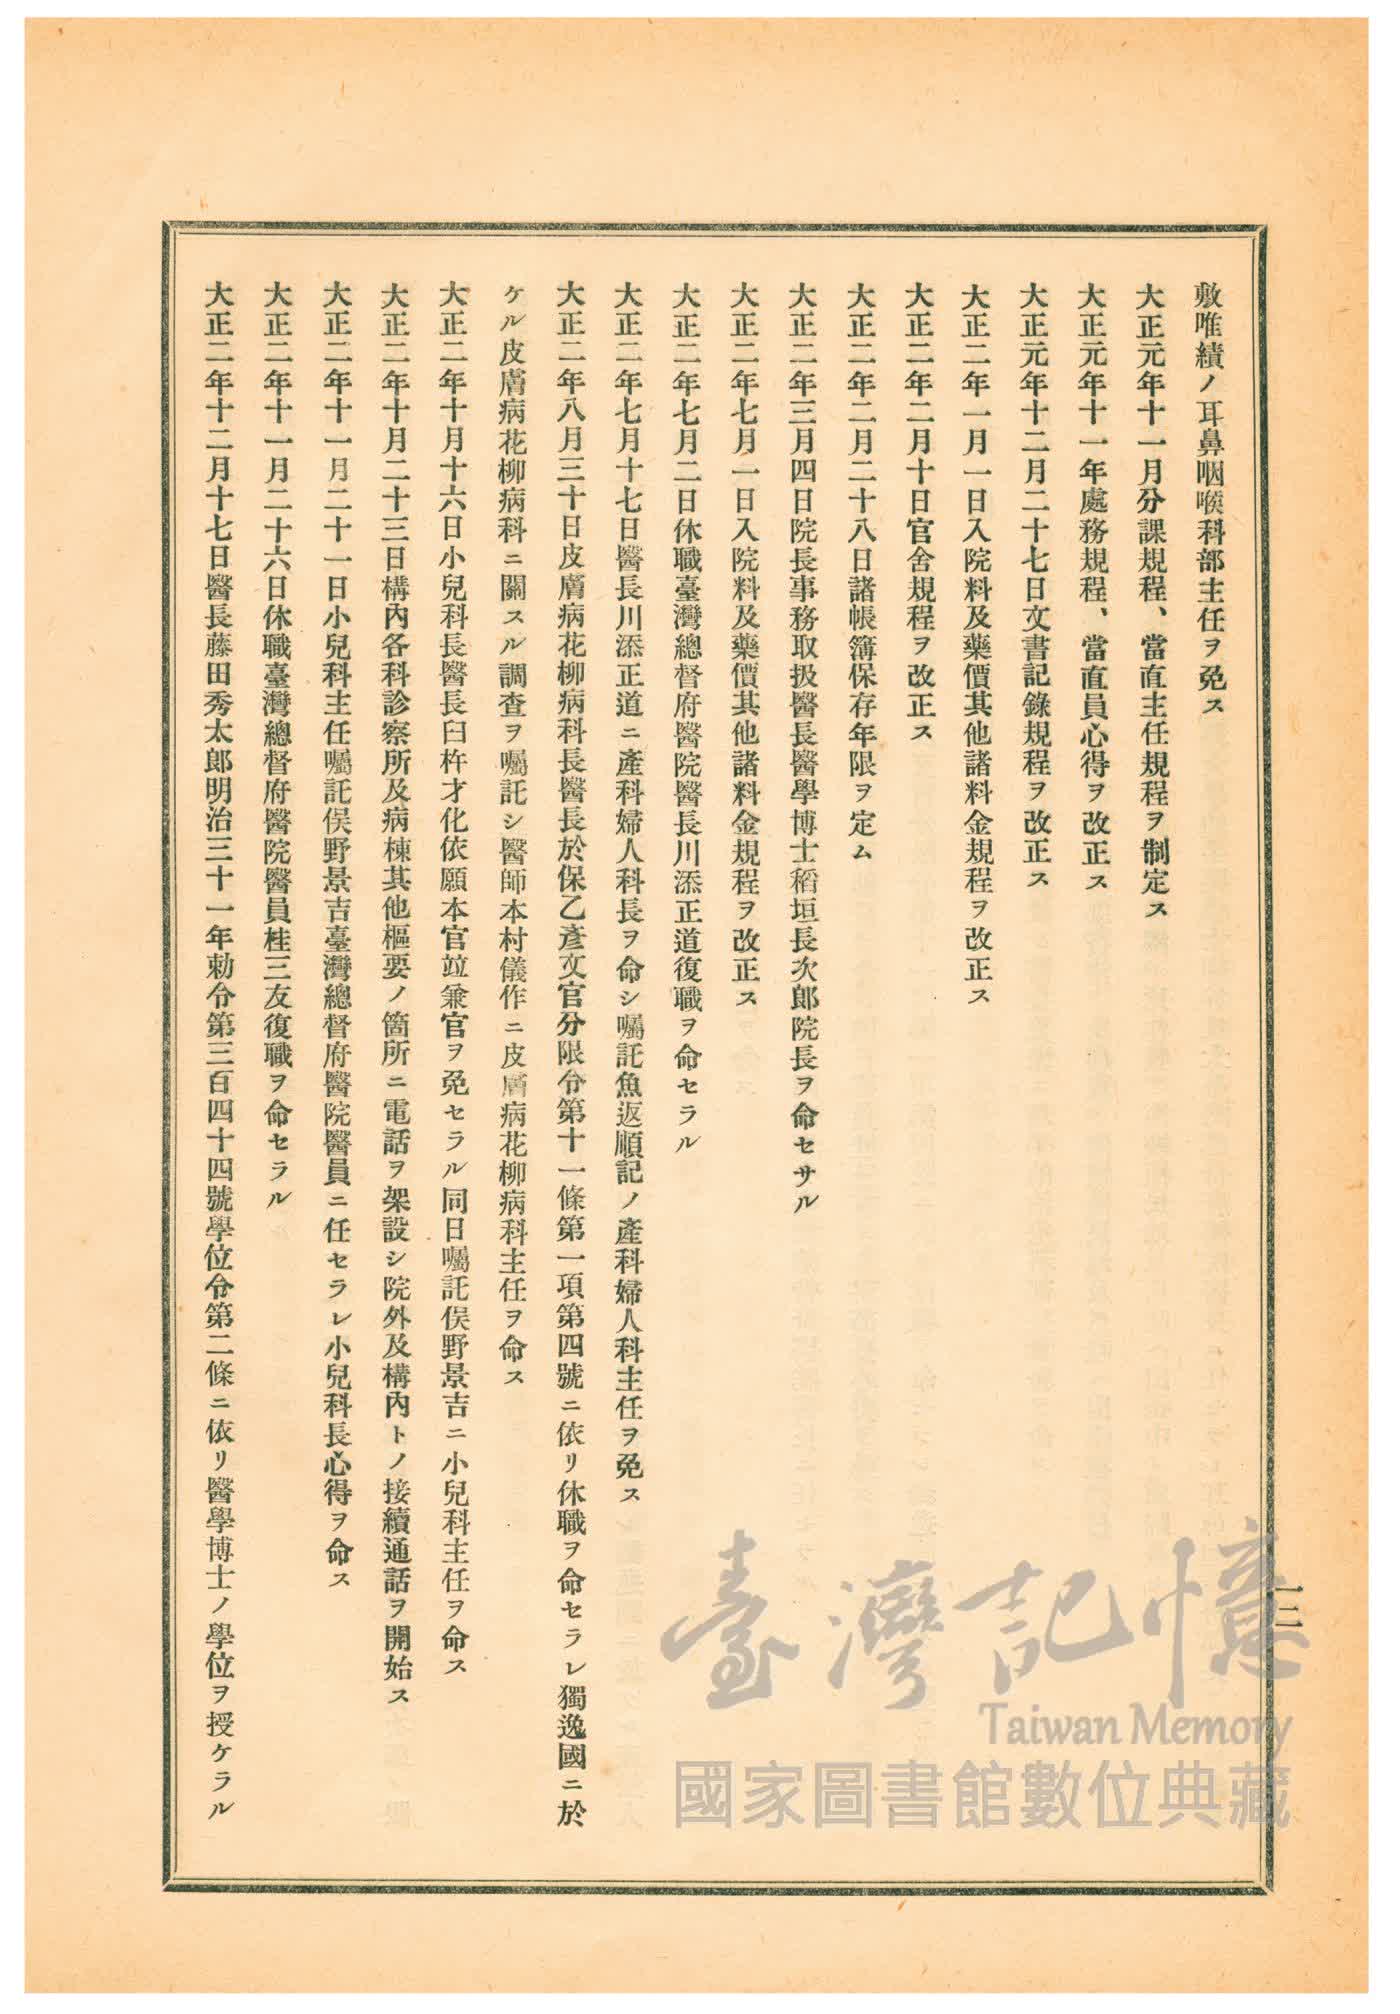 敷唯績ノ耳鼻咽喉科部主任ヲ免ス
大正元年十一月分課規程、當直主任規程ヲ制定ス
大正元年十一年處務規程、當直員心得ヲ改正ス
大正元年十二月二十七日文書記錄規程ヲ改正ス
大正二年一月一日入院料及藥價其他諸料金規程ヲ改正ス
大正二年二月十日官舍規程ヲ改正ス
大正二年二月二十八日諸帳簿保存年限ヲ定ム
大正二年三月四日院長事務取扱醫長醫學博士稻垣長次郎院長ヲ命セサル
大正二年七月一日入院料及藥價其他諸料金規程ヲ改正ス
大正二年七月二日休職臺灣總督府醫院醫長川添正道復職ヲ命セラル
大正二年七月十七日醫長川添正道ニ產科婦人科長ヲ命シ囑託魚返順記ノ產科婦人科主任ヲ免ス
大正二年八月三十日皮膚病花柳病科長醫長於保乙彥文官分限令第十一條第一項第四號ニ依リ休職ヲ命セラレ獨逸國ニ於
ケル皮膚病花柳病科ニ關スル調查ヲ囑託シ醫師本村儀作ニ皮膚病花柳病科主任ヲ命ス
大正二年十月十六日小兒科長醫長臼杵才化依願本官竝兼官ヲ免セラル同日囑託俣野景吉ニ小兒科主任ヲ命ス
大正二年十月二十三日構內各科診察所及病棟其他樞要ノ箇所ニ電話ヲ架設シ院外及構內トノ接續通話ヲ開始ス
大正二年十一月二十一日小兒科主任囑託俣野景吉臺灣總督府醫院醫員ニ任セラレ小兒科長心得ヲ命ス
大正二年十一月二十六日休職臺灣總督府醫院醫員桂三友復職ヲ命セラル
大正二年十二月十七日醫長藤田秀太郎明治三十一年勅令第三百四十四號學位令第二條ニ依リ醫學博士ノ學位ヲ授ケラル
一二
臺灣記憶
Taiwan Memory
國家圖書館數位典藏